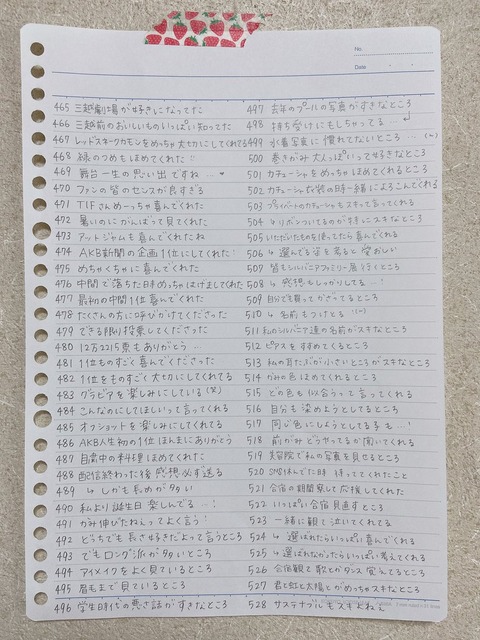 No.
Date
465 三越劇場が好きになってた
466 三越前のおいしいものいっぱい知ってた
467 レッドスネークカモンをめっちゃ大切にしてくれてる
468 緑のつめもほめてくれた!!
469 舞台一生の思い出ですね…♥
470 ファンの皆のセンスが良すぎる
471 TIFさんめーっちゃ喜んでくれた
472 暑いのにがんばって見てくれた
473 アットジャムも喜んでくれたね
474 AKB新聞の企画1位にしてくれた!
475 めちゃくちゃに喜んでくれた
476 中間で落ちた日めっちゃはげましてくれた
477 最初の中間1位喜んでくれた
478 たくさんの方に呼びかけてくれた
479 できる限り投票してくださった
480 12万2215票もありがとう…
481 1位ものすごく喜んでくださった
482 1位をものすごく大切にしてくれてる
483 グラビアを楽しみにしている(笑)
484 こんなのにしてほしいって言ってくれる
485 オクショットを楽しみにしてくれる
486 AKB人生初の1位ほんまにありがとう
487 自粛中の料理ほめてくれた
488 配信終わった後感想必ず送る
489 ↳しかも長めが多い
490 私より誕生日楽しんでる…!
491 かみ伸びたねぇってよく言う!
492 どっちでも長さ好きだよって言うところ
493 でもロング派が多いところ
494 アイメイクをよく見ているところ
495 眉もまで見ているところ
496 学生時代の悪さ話がすきなところ
497 去年のプールの写真がすきなところ
498 持ち受けにもしちゃってる…
499 水着写真に慣れてないところ…(〃)
500 巻きがみ大人っぽいって好きなところ
501 カチューシャをめっちゃほめてくれるところ
502 カチューシャ女装の時一緒によろこんでくれる
503 プライベートのカチューシャもスキって言ってくれる
504 ↳リボンついてるのが特にスキなところ
505 いただいたものを使ってたら喜んでくれる
506 ↳選んでる姿を考えると愛おしい
507 皆もシルバニアファミリー展行くところ
508 ↳感想もしっかりしてる…!
509 自分でも買ってかざってるところ
510 ↳名前もつけてる(〃)
511 私のシルバニア達の名前がスキなところ
512 ピアスをすすめてくるところ
513 私の耳たぶが小さいところがスキなところ
514 かみの色ほめてくれるところ
515 どの色も似合うって言ってくれる
516 自分も染めようとしてるところ
517 同じ色にしようとしてる子も…!
518 前がみどうやってるか聞いてくれる
519 美容院で私の写真を見せるところ
520 SNS休んでた時待っててくれたこと
521 合宿の期間祭して応援してくれた
522 いっぱい合宿見直すところ
523 一緒に観て泣いてくれてる
524 ↳選ばれたらいっぱい喜んでくれる
525 ↳選ばれなかったらいっぱい考えてくれる
526 合宿観て歌とかダンス覚えてるところ
527 君と虹と太陽とがめっちゃスキなところ
528 サステナブルもスキよねぇ